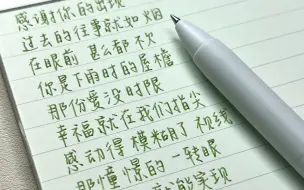 感谢你的出现
过去的往事就如烟
在眼前 甚么都不欠
你是下雨时的屋檐
那份爱没时限
幸福就在我们指尖
感动得模糊了视线
那憧憬的一转眼
能实现